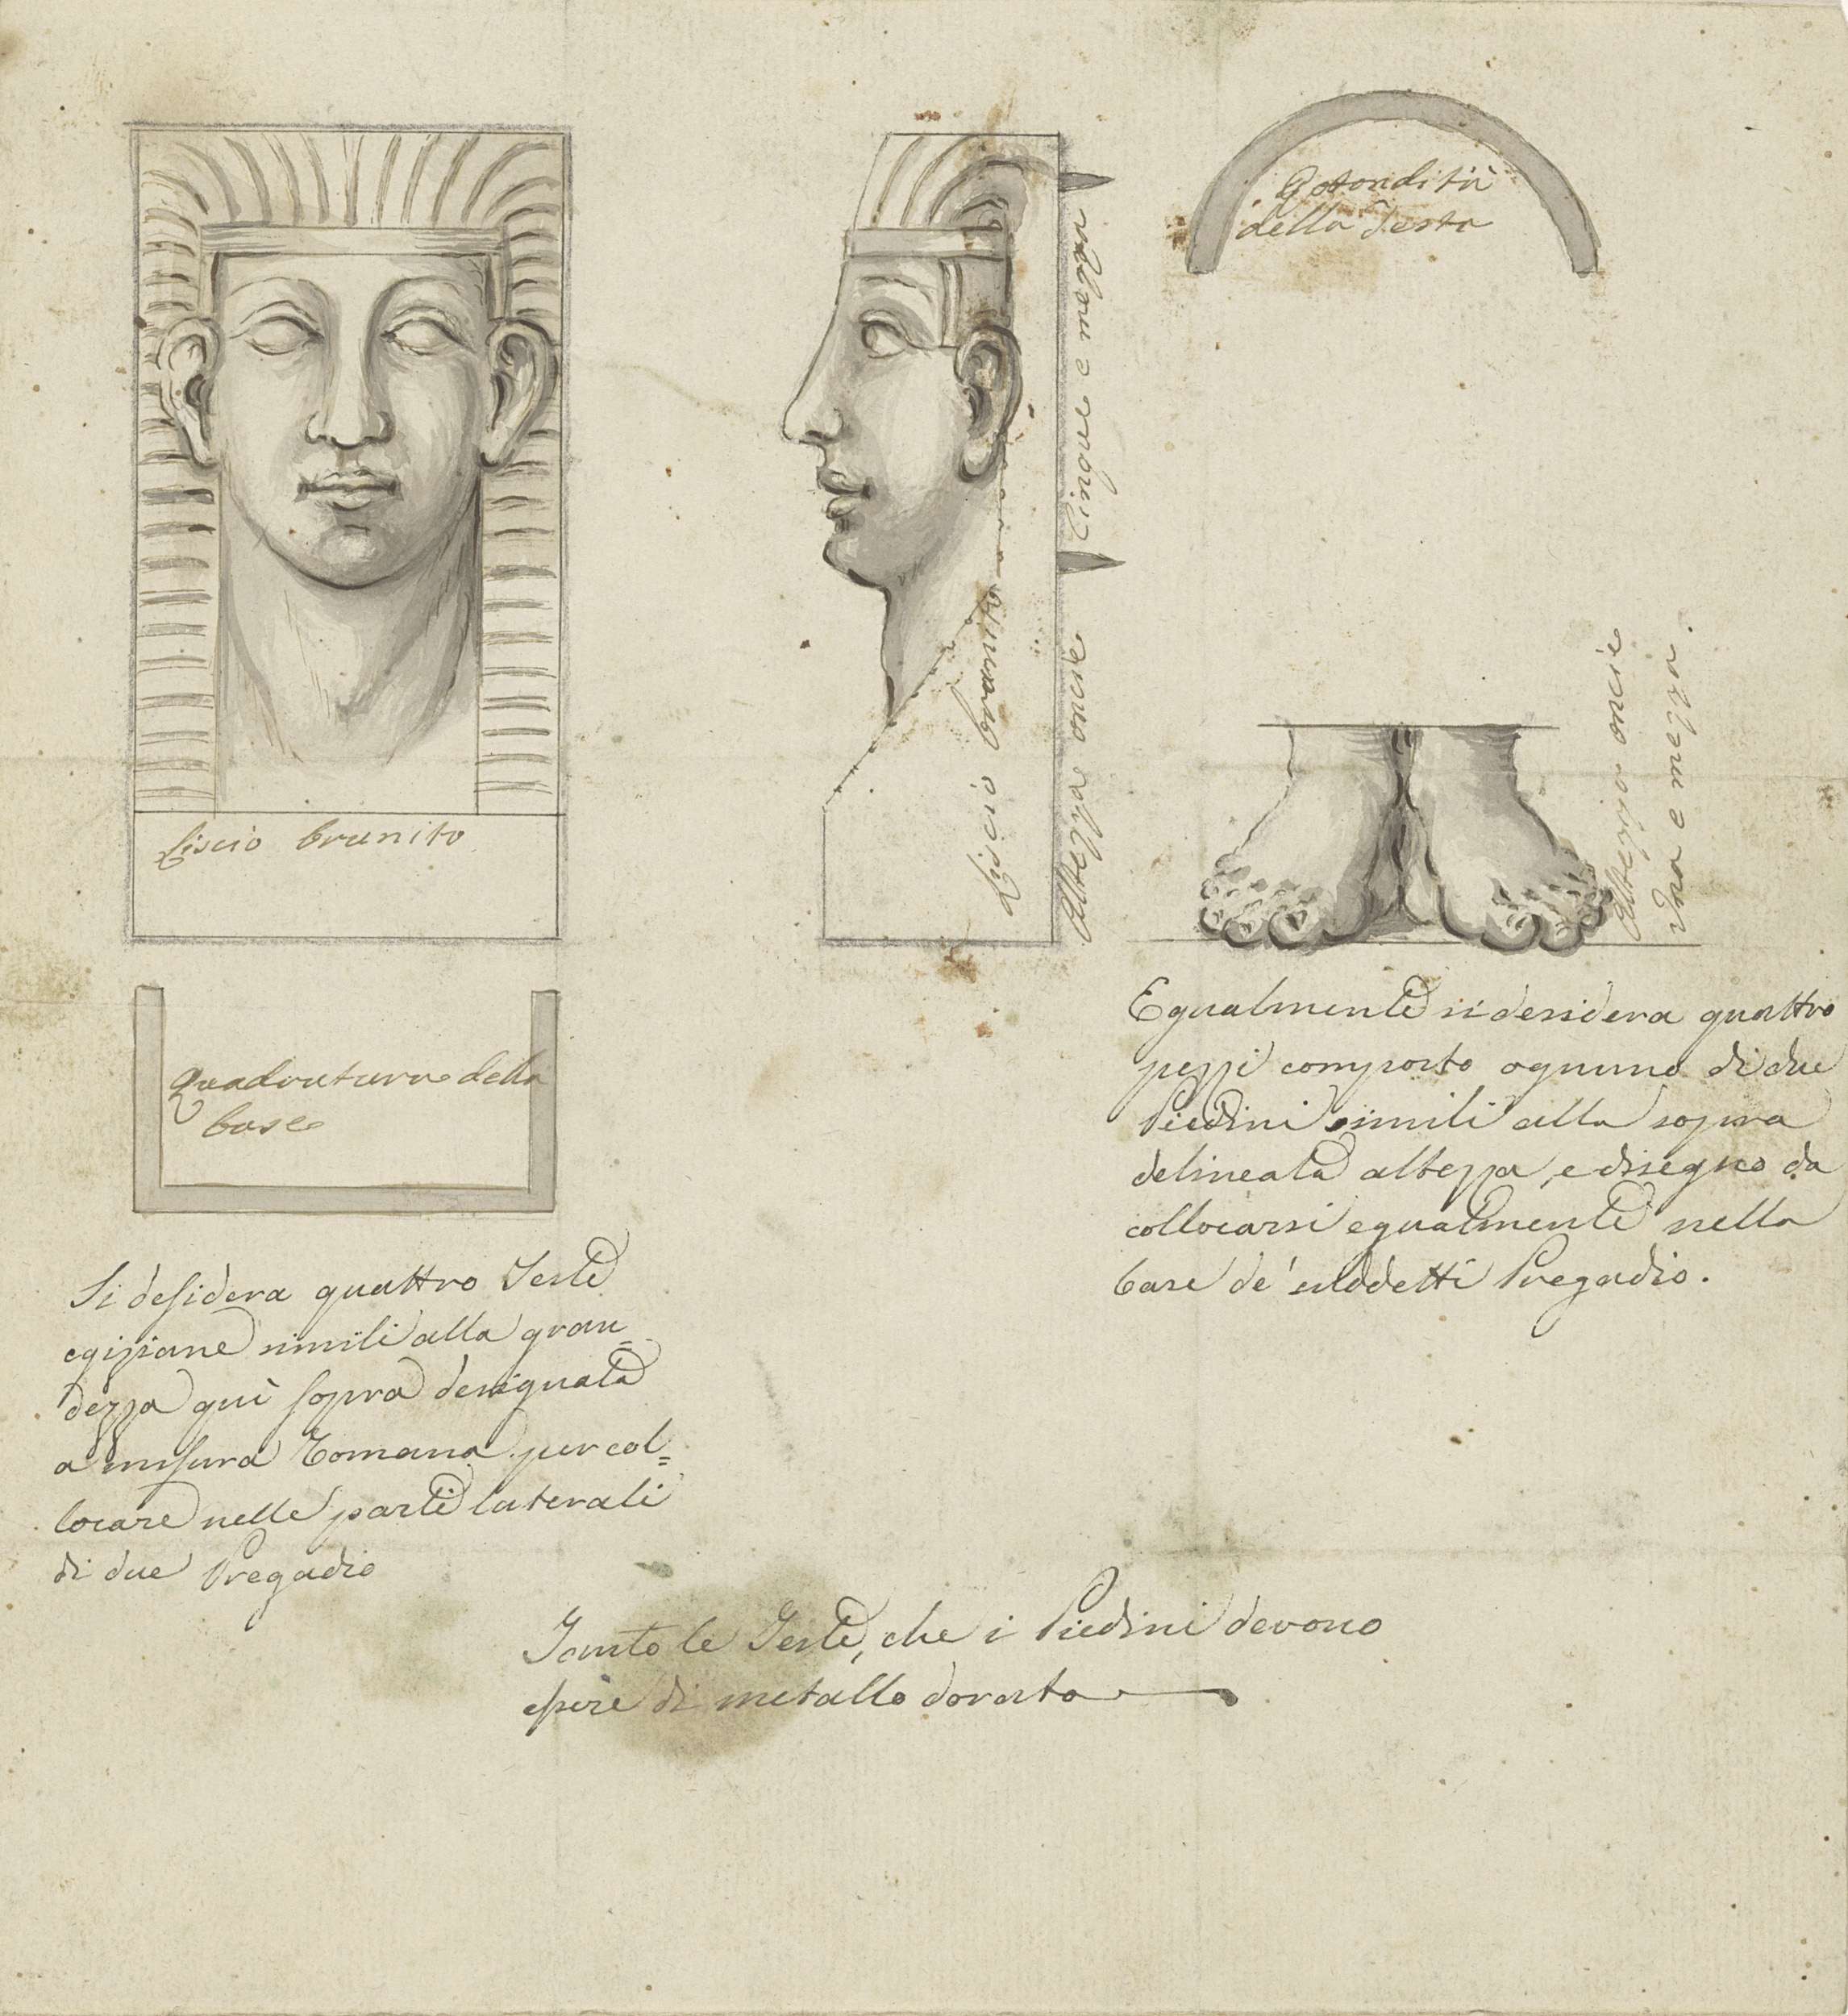 Rotondità
della Testa
Liscio brunito
Liscio brunito
Altezza oncie Cinque e mezza
Altezza oncie
Una e mezza.
Quadratura della
base
Si desidera quattro Teste
egiziane simili alla gran=
dezza quì sopra designata
a misura Romana per col=
locare nelle parti laterali
di due Pregadio
Egualmente si desidera quattro
pezzi composto ognuno di due
Piedini simili alla sopra
delineata altezza, e disegno da
collocarsi egualmente nella
base de' suddetti Pregadio.
Tanto le Teste, che i Piedini devono
essere di metallo dorato